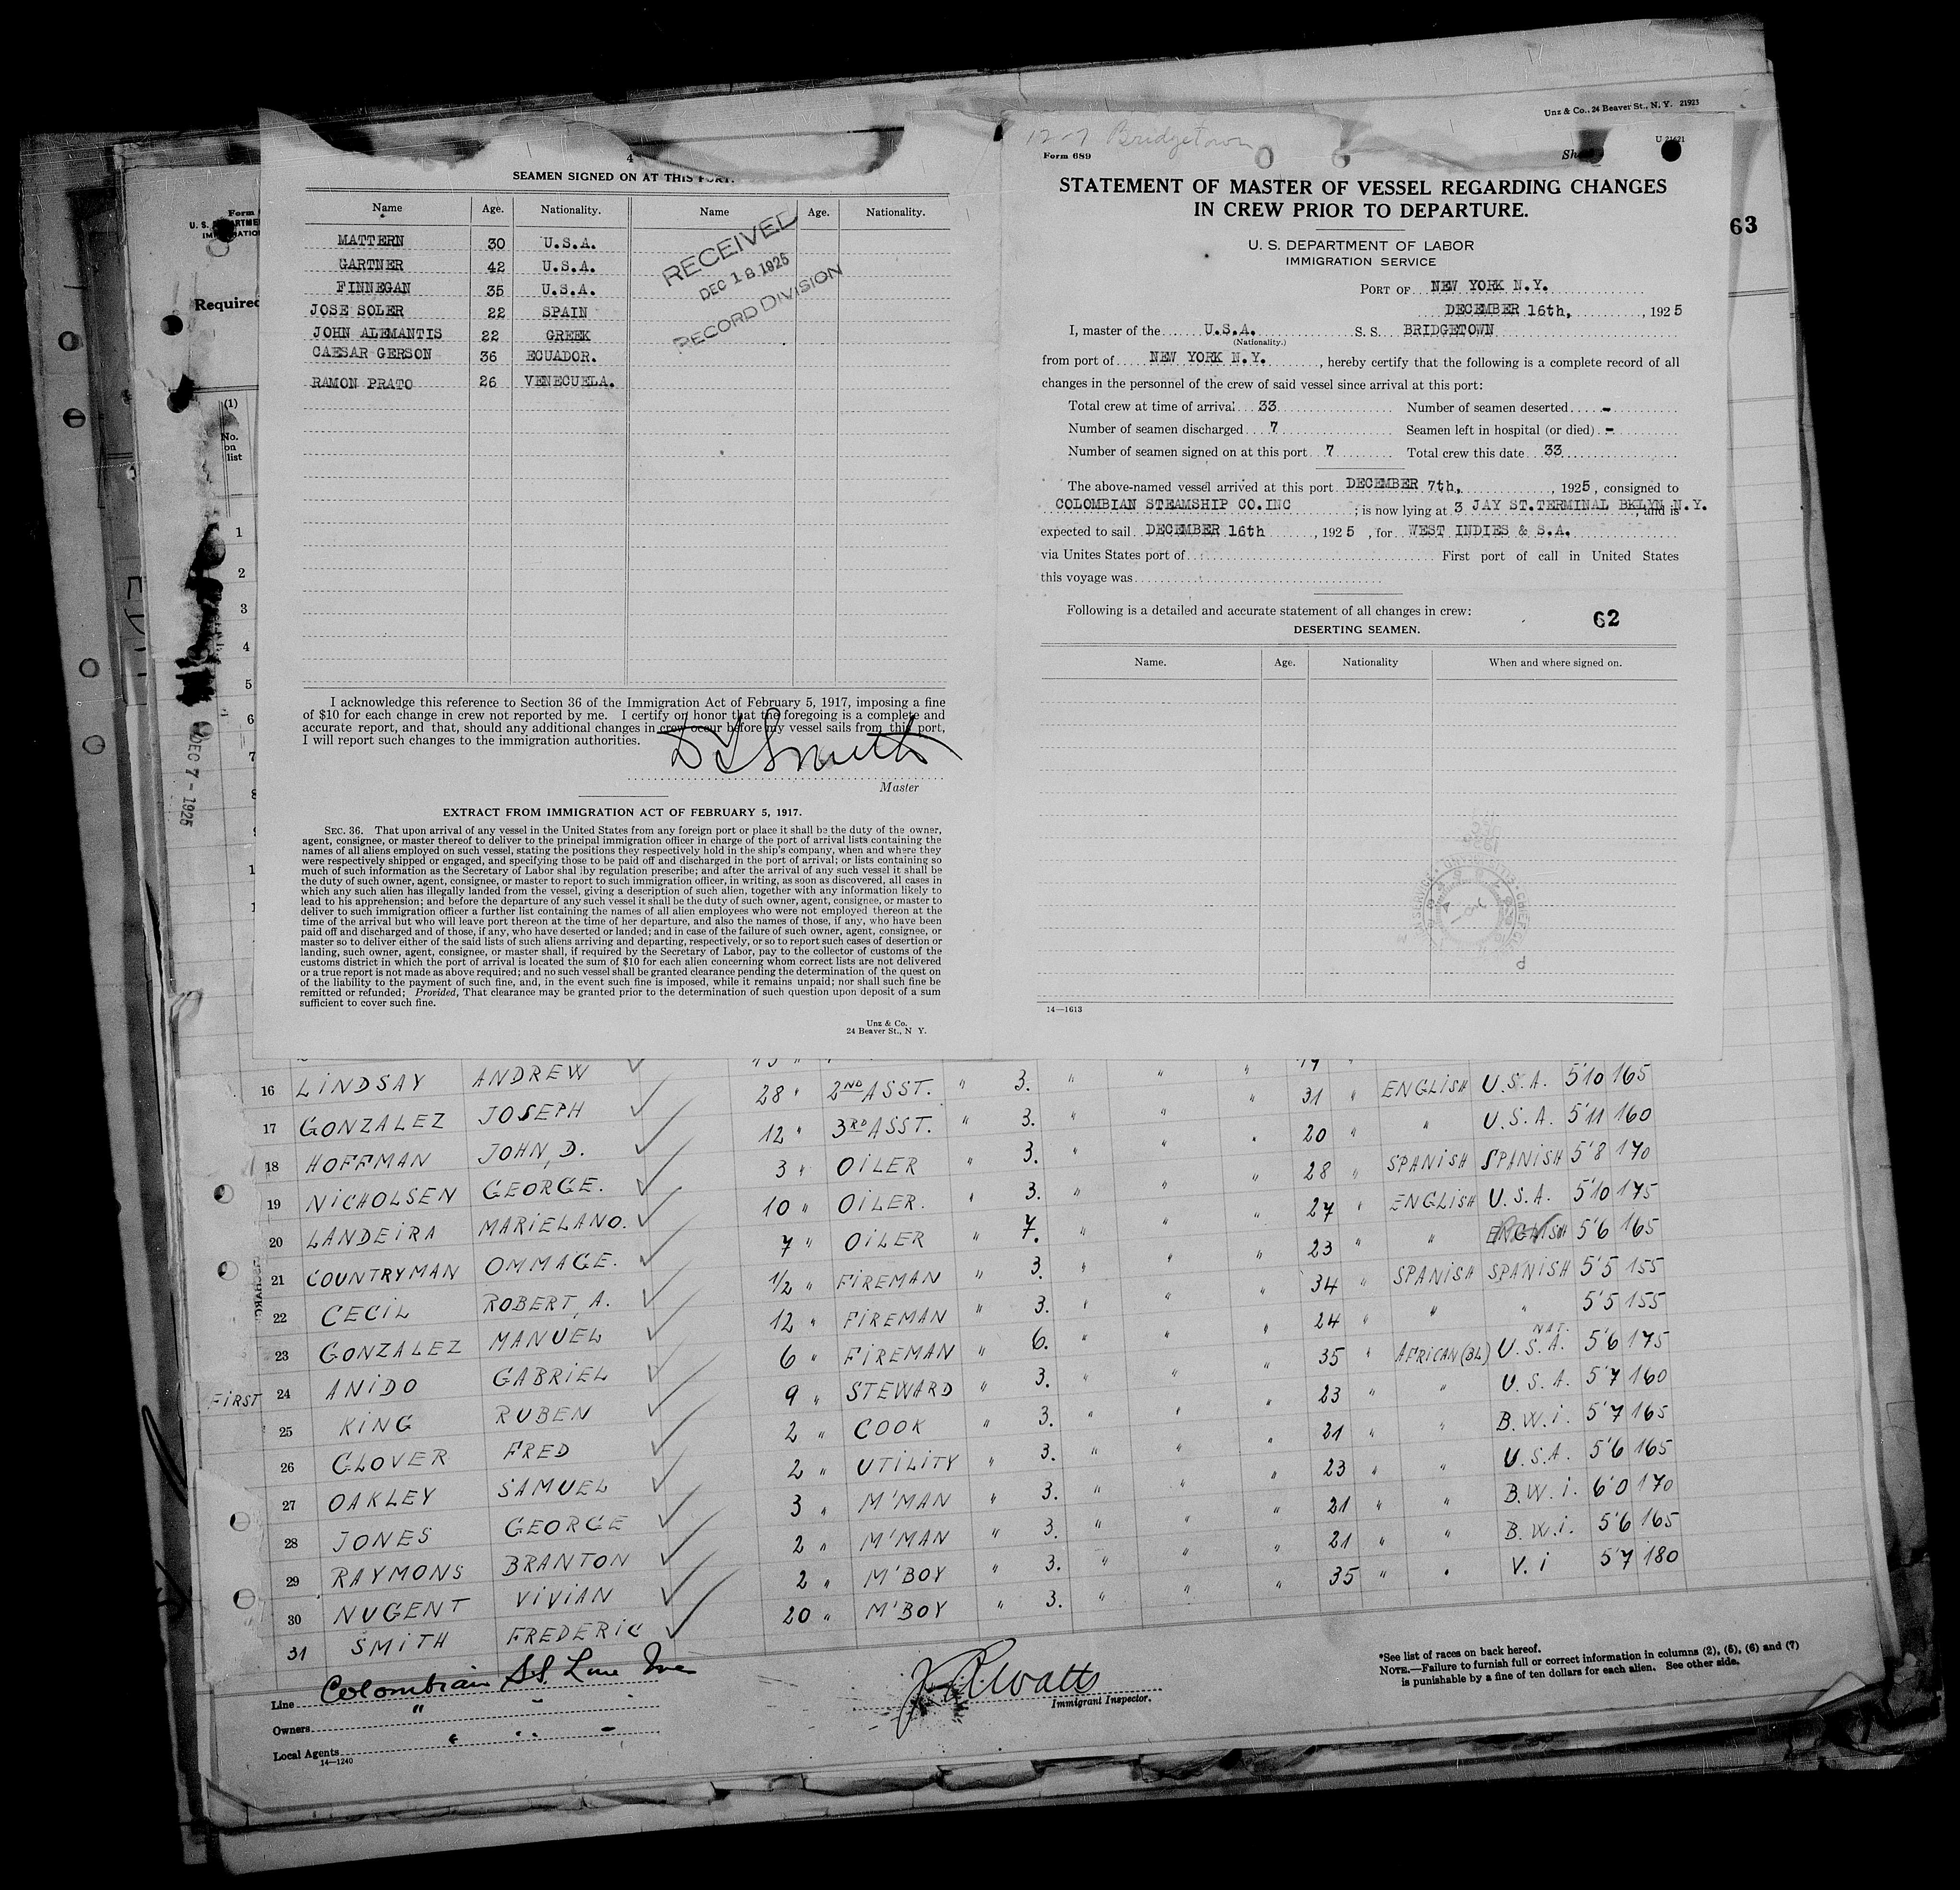 Unz & Co., 24 Beaver St., N. Y. 21923
63
Form
U. S.
Required
(1)
No. on list
1
2
3
4
5
6
7
8
DEC 7 - 1925
4
SEAMEN SIGNED ON AT THIS PORT.
Name Age. Nationality. Name Age. Nationality.
MATTERN 30 U.S.A.
GARTNER 42 U.S.A.
FINNEGAN 35 U.S.A.
JOSE SOLER 22 SPAIN
JOHN ALEMANTIS 22 GREEK
CAESAR GERSON 36 ECUADOR.
RAMON PRATO 26 VENECUELA.
RECEIVED
DEC 18 1925
RECORD DIVISION
I acknowledge this reference to Section 36 of the Immigration Act of February 5, 1917, imposing a fine
of $10 for each change in crew not reported by me. I certify on honor that the foregoing is a complete and
accurate report, and that, should any additional changes in crew occur before my vessel sails from this port,
I will report such changes to the immigration authorities.
Smith
Master
EXTRACT FROM IMMIGRATION ACT OF FEBRUARY 5, 1917.
SEC. 36. That upon arrival of any vessel in the United States from any foreign port or place it shall be the duty of the owner,
agent, consignee, or master thereof to deliver to the principal immigration officer in charge of the port of arrival lists containing the
names of all aliens employed on such vessel, stating the positions they respectively hold in the ship's company, when and where they
were respectively shipped or engaged, and specifying those to be paid off and discharged in the port of arrival; or lists containing so
much of such information as the Secretary of Labor shal by regulation prescribe; and after the arrival of any such vessel it shall be
the duty of such owner, agent, consignee, or master to report to such immigration officer, in writing, as soon as discovered, all cases in
which any such alien has illegally landed from the vessel, giving a description of such alien, together with any information likely to
lead to his apprehension; and before the departure of any such vessel it shall be the duty of such owner, agent, consignee, or master to
deliver to such immigration officer a further list containing the names of all alien employees who were not employed thereon at the
time of the arrival but who will leave port thereon at the time of her departure, and also the names of those, if any, who have been
paid off and discharged and of those, if any, who have deserted or landed; and in case of the failure of such owner, agent, consignee, or
master so to deliver either of the said lists of such aliens arriving and departing, respectively, or so to report such cases of desertion or
landing, such owner, agent, consignee, or master shall, if required by the Secretary of Labor, pay to the collector of customs of the
customs district in which the port of arrival is located the sum of $10 for each alien concerning whom correct lists are not delivered
or a true report is not made as above required; and no such vessel shall be granted clearance pending the determination of the quest on
of the liability to the payment of such fine, and, in the event such fine is imposed, while it remains unpaid; nor shall such fine be
remitted or refunded; Provided, That clearance may be granted prior to the determination of such question upon deposit of a sum
sufficient to cover such fine.
Unz & Co.
24 Beaver St., N Y.
12-7 Bridgetown
Form 689
STATEMENT OF MASTER OF VESSEL REGARDING CHANGES
IN CREW PRIOR TO DEPARTURE.
U. S. DEPARTMENT OF LABOR
IMMIGRATION SERVICE
PORT OF NEW YORK N.Y.
DECEMBER 16th, , 1925
I, master of the U.S.A. S. S. BRIDGETOWN
(Nationality.)
from port of NEW YORK N.Y. , hereby certify that the following is a complete record of all
changes in the personnel of the crew of said vessel since arrival at this port:
Total crew at time of arrival 33 Number of seamen deserted -
Number of seamen discharged 7 Seamen left in hospital (or died) -
Number of seamen signed on at this port 7 Total crew this date 33
The above-named vessel arrived at this port DECEMBER 7th, , 1925, consigned to
COLOMBIAN STEAMSHIP CO.INC ; is now lying at 3 JAY ST.TERMINAL BKLYN N.Y. , and is
expected to sail DECEMBER 16th , 1925 , for WEST INDIES & S.A.
via Unites States port of First port of call in United States
this voyage was
Following is a detailed and accurate statement of all changes in crew:
62
DESERTING SEAMEN.
Name. Age. Nationality When and where signed on.
14—1613
16 LINDSAY ANDREW 28 " 2ND ASST. " 3. " " " 31 " ENGLISH U.S.A. 5'10 165
17 GONZALEZ JOSEPH 12 " 3RD ASST. " 3. " " " 20 " " U.S.A. 5'11 160
18 HOFFMAN JOHN, D. 3 " OILER " 3. " " " 28 " SPANISH SPANISH 5'8 170
19 NICHOLSEN GEORGE. 10 " OILER. " 3. " " " 27 " ENGLISH U.S.A. 5'10 175
20 LANDEIRA MARIELANO. 7 " OILER " 7. " " " 23 " " 5'6 165
21 COUNTRYMAN OMMAGE. 1/2 " FIREMAN " 3. " " " 34 " SPANISH SPANISH 5'5 155
22 CECIL ROBERT, A. 12 " FIREMAN " 3. " " " 24 " " " 5'5 155
23 GONZALEZ MANUEL 6 " FIREMAN " 6. " " " 35 " AFRICAN (BL) NAT. U.S.A. 5'6 175
FIRST 24 ANIDO GABRIEL 9 " STEWARD " 3. " " " 23 " " U.S.A. 5'7 160
25 KING RUBEN 2 " COOK " 3. " " " 21 " " B.W.I. 5'7 165
26 GLOVER FRED 2 " UTILITY " 3. " " " 23 " " U.S.A. 5'6 165
27 OAKLEY SAMUEL 3 " M'MAN " 3. " " " 21 " " B.W.I. 6'0 170
28 JONES GEORGE 2 " M'MAN " 3. " " " 21 " " B.W.I. 5'6 165
29 RAYMONS BRANTON 2 " M'BOY " 3. " " " 35 " " V.I 5'7 180
30 NUGENT VIVIAN 20 " M'BOY " 3. " "
31 SMITH FREDERIC
Line Colombian SS. Line Inc
Owners " " "
Local Agents
14—1240
Watts
Immigrant Inspector.
*See list of races on back hereof.
NOTE.—Failure to furnish full or correct information in columns (2), (5), (6) and (7)
is punishable by a fine of ten dollars for each alien. See other side.